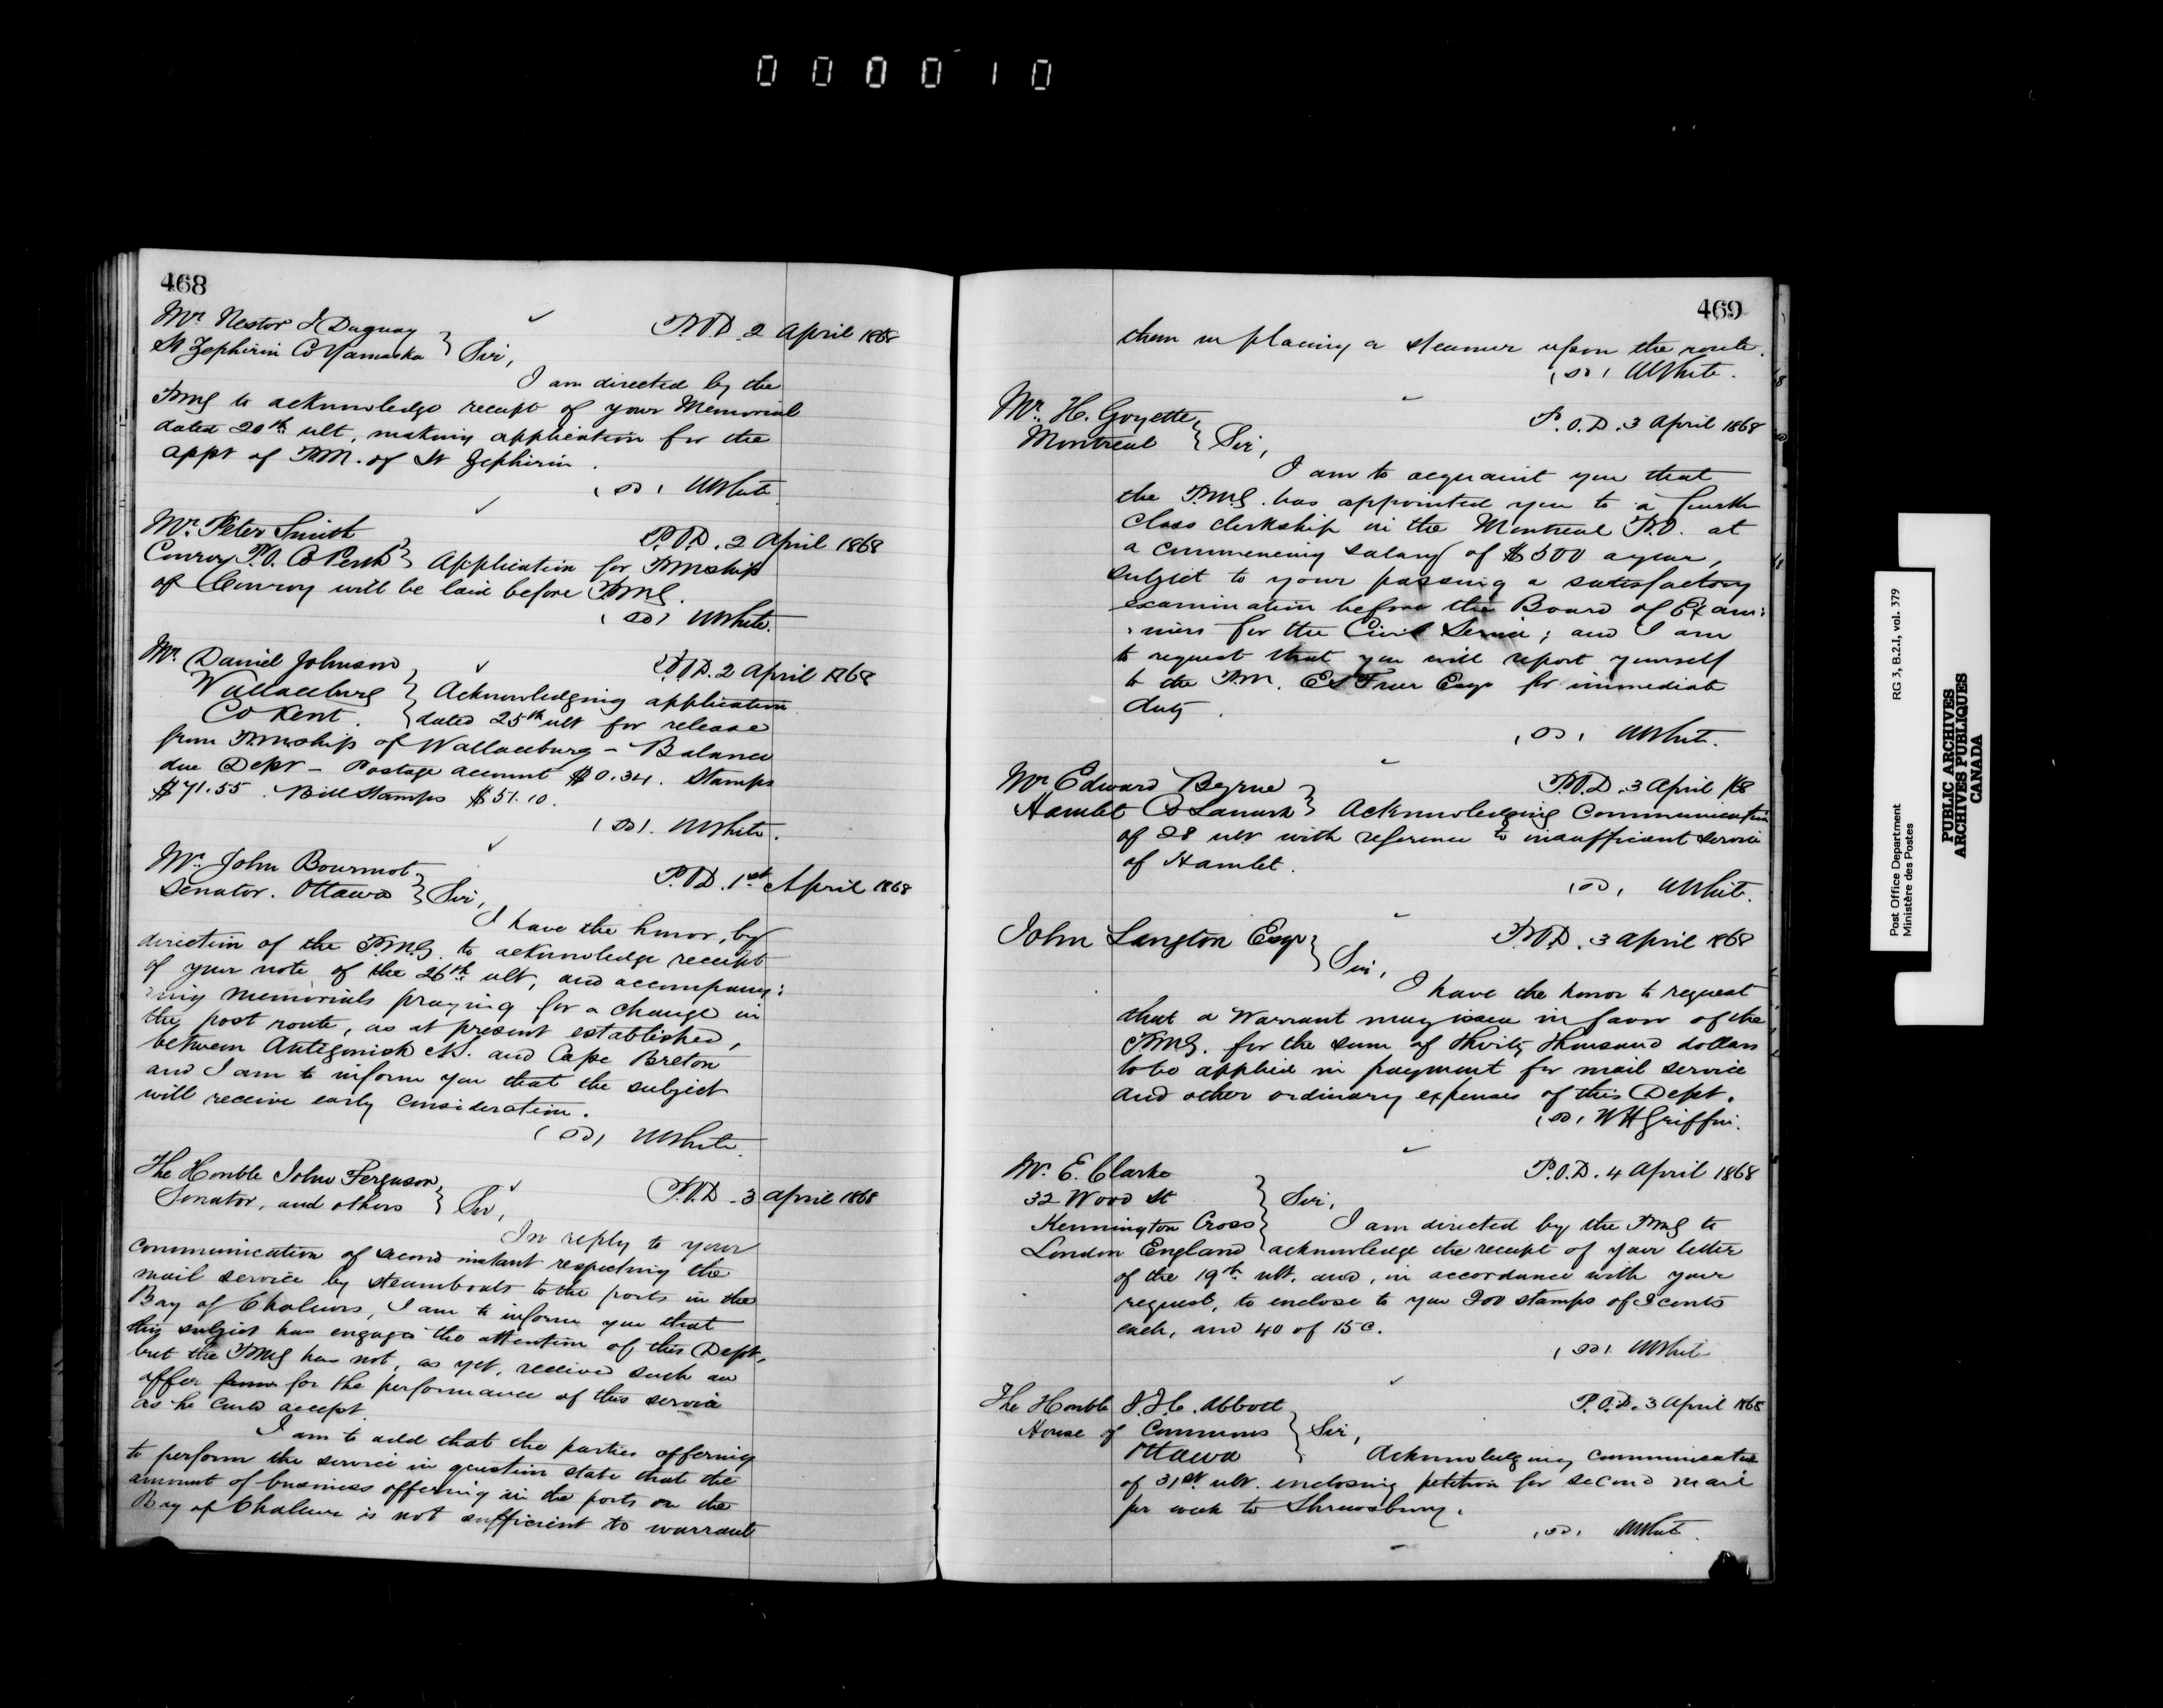 000010
468
Mr. Nestor J Duguay
P.O.D. 2 April 1868
St Zephirin Co Yamaska } Sir,
I am directed by the
PMG to acknowledge receipt of your Memorial
dated 20th ult, making application for the
appt of P.M. of St Zephirin.
(SD) WWhite
Mr. Peter Smith
P.O.D. 2 April 1868
Conroy P.O. Co Perth } Application for PMship
of Conroy will be laid before PMG.
(SD) WWhite.
Mr. Daniel Johnson
P.O.D. 2 April 1868
Wallaceburg } Acknowledging application
Co Kent. } dated 25th ult for release
from PMship of Wallaceburg - Balance
due Dept - Postage account $0.34. Stamps
$71.55. Bill Stamps $51.10.
(SD). WWhite.
Mr. John Bourinot
P.O.D. 1st April 1868
Senator. Ottawa } Sir,
I have the honor, by
direction of the P.M.G. to acknowledge receipt
of your note of the 26th ult, and accompany:
:ing memorials praying for a change in
the post route, as at present established,
between Antigonish N.S. and Cape Breton
and I am to inform you that the subject
will receive early consideration.
(SD) WWhite.
The Honble John Ferguson,
P.O.D. 3 April 1868
Senator, and others } Sir,
In reply to your
communication of second instant respecting the
mail service by steamboats to the ports in the
Bay of Chaleurs, I am to inform you that
this subject has engaged the attention of this Dept.
but the PMG has not, as yet, received such an
offer for the performance of this service
as he could accept.
I am to add that the parties offering
to perform the service in question state that the
amount of business offering in the ports on the
Bay of Chaleur is not sufficient to warrant
469
them in placing a steamer upon the route.
(SD) WWhite.
Mr. H. Goyette,
P.O.D. 3 April 1868
Montreal } Sir,
I am to acquaint you that
the P.M.G. has appointed you to a fourth
Class clerkship in the Montreal P.O. at
a commencing salary of $500 a year,
subject to your passing a satisfactory
examination before the Board of Exam:
:iners for the Civil Service; and I am
to request that you will report yourself
to the P.M. E S Freer Esqr for immediate
duty.
(SD) WWhite.
Mr Edward Byrne
P.O.D. 3 April 1868
Hamlet Co Lanark } Acknowledging Communication
of 28 ult with reference to insufficient service
of Hamlet.
(SD) WWhite.
John Langton Esqr
P.O.D. 3 April 1868
Sir,
I have the honor to request
that a Warrant may issue in favor of the
PMG. for the sum of thirty thousand dollars
to be applied in payment for mail service
and other ordinary expenses of this Dept.
(SD) WHGriffin.
Mr. E. Clarke
P.O.D. 4 April 1868
32 Wood St } Sir,
Kennington Cross } I am directed by the PMG to
London England } acknowledge the receipt of your letter
of the 19th ult. and, in accordance with your
request, to enclose to you 200 stamps of 2 cents
each, and 40 of 15 c.
(SD) WWhite
The Honble J.J.C. Abbott
P.O.D. 3 April 1868
House of Commons } Sir,
Ottawa } Acknowledging communication
of 31st ult. enclosing petition for second mail
per week to Shrewsbury.
(SD) WWhite.
Post Office Department RG 3, B.2.I, vol. 379
Ministère des Postes
PUBLIC ARCHIVES
ARCHIVES PUBLIQUES
CANADA